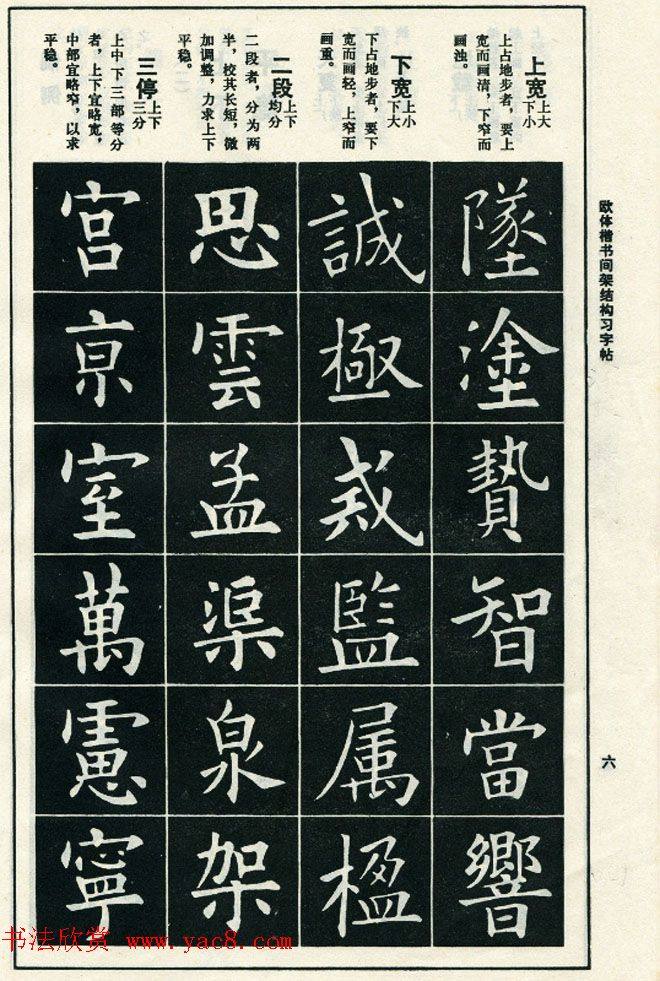 欧体楷书间架结构习字帖
六
上宽
上大
下小
上占地步者，要上
宽而画清，下窄而
画浊。
墜
塗
贄
智
當
響
下宽
上小
下大
下占地步者，要下
宽而画轻，上窄而
画重。
誠
極
監
属
楹
二段
上下
均分
二段者，分为两
半，校其长短，微
加调整，力求上下
平稳。
思
雲
孟
渠
泉
架
三停
上下
三分
上中下三部等分
者，上下宜略宽，
中部宜略窄，以求
平稳。
宫
亰
室
萬
寧
书法欣赏 www.yac8.com